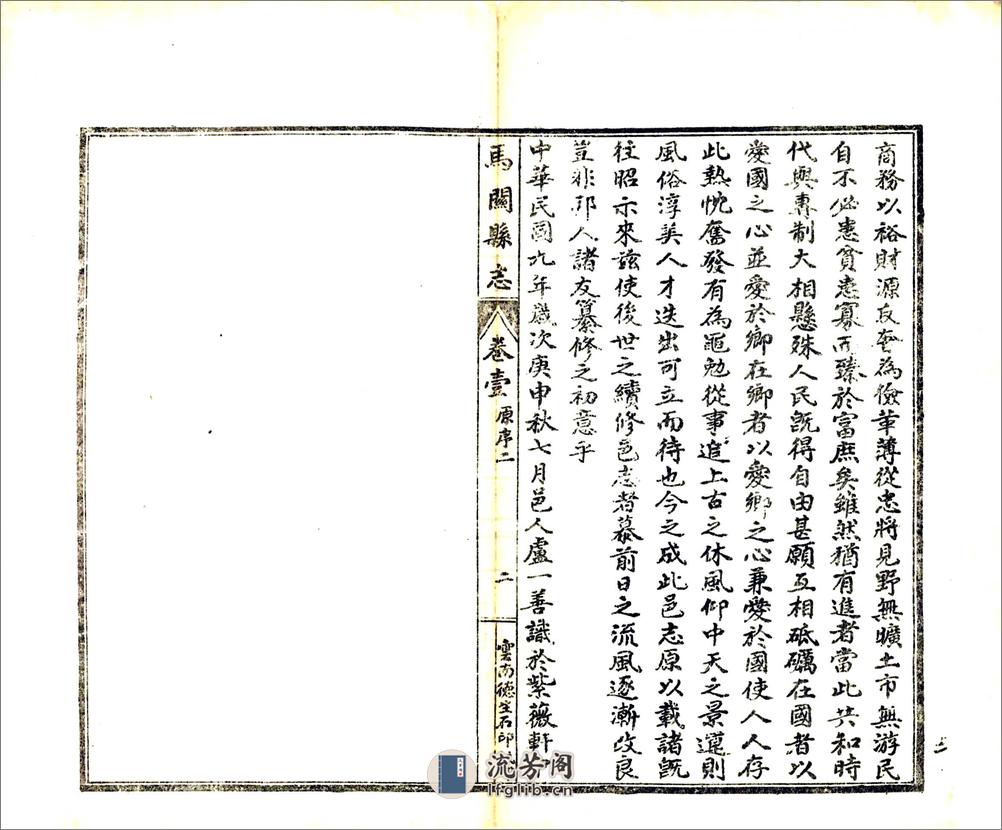 商務以裕財源反奢為儉革薄從忠將見野無曠土市無游民
自不必患貧患寡而臻於富庶矣雖然猶有進者當此共和時
代與專制大相懸殊人民既得自由甚願互相砥礪在國者以
愛國之心並愛於鄉在鄉者以愛鄉之心兼愛於國使人人存
此熱忱奮發有為黽勉從事追上古之休風仰中天之景運則
風俗淳美人才迭出可立而待也今之成此邑志原以載諸既
往昭示來茲使後世之續修邑志者慕前日之流風逐漸改良
豈非邵人諸友纂修之初意乎
中華民國九年歲次庚申秋七月邑人盧一善識於紫薇軒
馬關縣志
卷壹
原序二
二
雲南德生石印
流芳阁
lfglib.cn